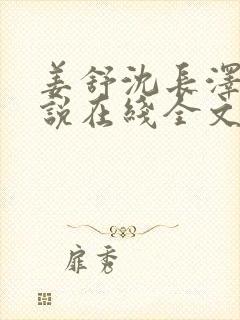 姜舒沈長澤
說在綫全文
扉秀